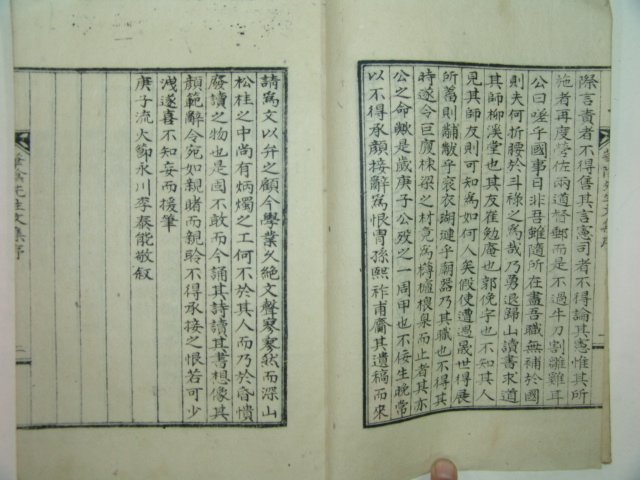 際言責者不得售其言憲司者不得論其憲惟其所
施者再度營佐兩道督郵而是不過牛刀割雞雞耳
公曰嗟乎國事日非吾雖隨所在盡吾職無補於國
則夫何折腰於斗祿之爲哉乃勇退歸山讀書求道
其師柳溪堂也其友崔勉庵也郭俛宇也不知其人
見其師友則可知爲如何人矣假使遭遇晟世得展
所蓄則黼黻乎袞衣瑚璉乎廟器乃其職也不得其
時遂令巨廈棟梁之材竟爲樽櫨椳臬而止者其亦
公之命歟是歲庚子公歿之一周甲也不佞生晩常
以不得承顔接辭爲恨胄孫熙祚甫齎其遺稿而來
請爲文以弁之顧今學業久絶文聲寥寥然而深山
松柱之中尚有炳燭之工何不於其人而乃於昏憒
廢讀之物也是固不敢而今誦其詩讀其書想像其
顔範辭令宛如親睹而親聆不得承接之恨若可少
洩遂喜不知妄而援筆
庚子流火節永川李泰能敬叙
華陰先生文集序
二